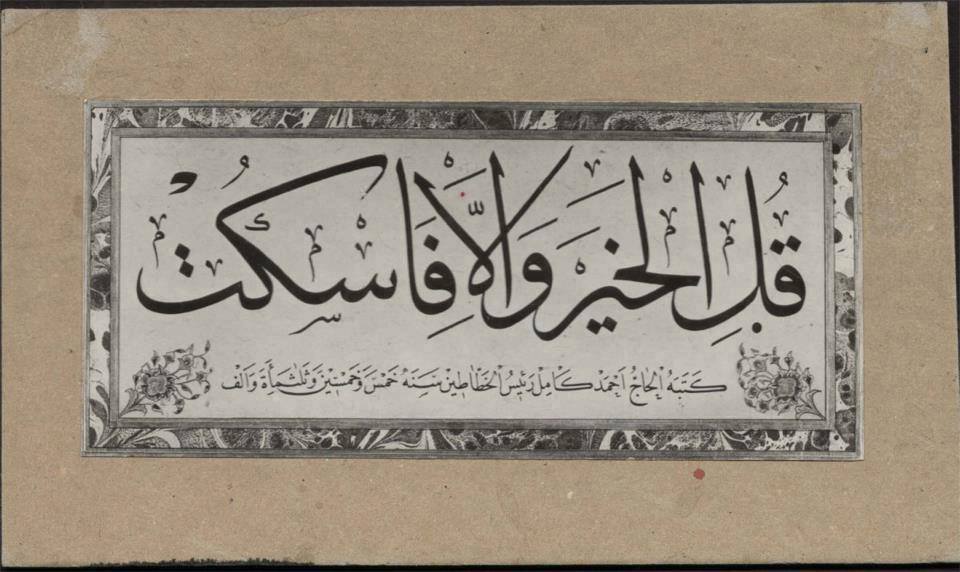 قُلِ الْخَيْرَ وَاِلَّا فَاسْكُتْ
كَتَبَهُ الْحَاجُّ اَحْمَدْ كَامِلْ رَئِيسُ الْخَطَّاطِينَ سَنَةَ خَمْسَ وَخَمْسِينَ وَثَلٰثَمِأَة وَاَلْف